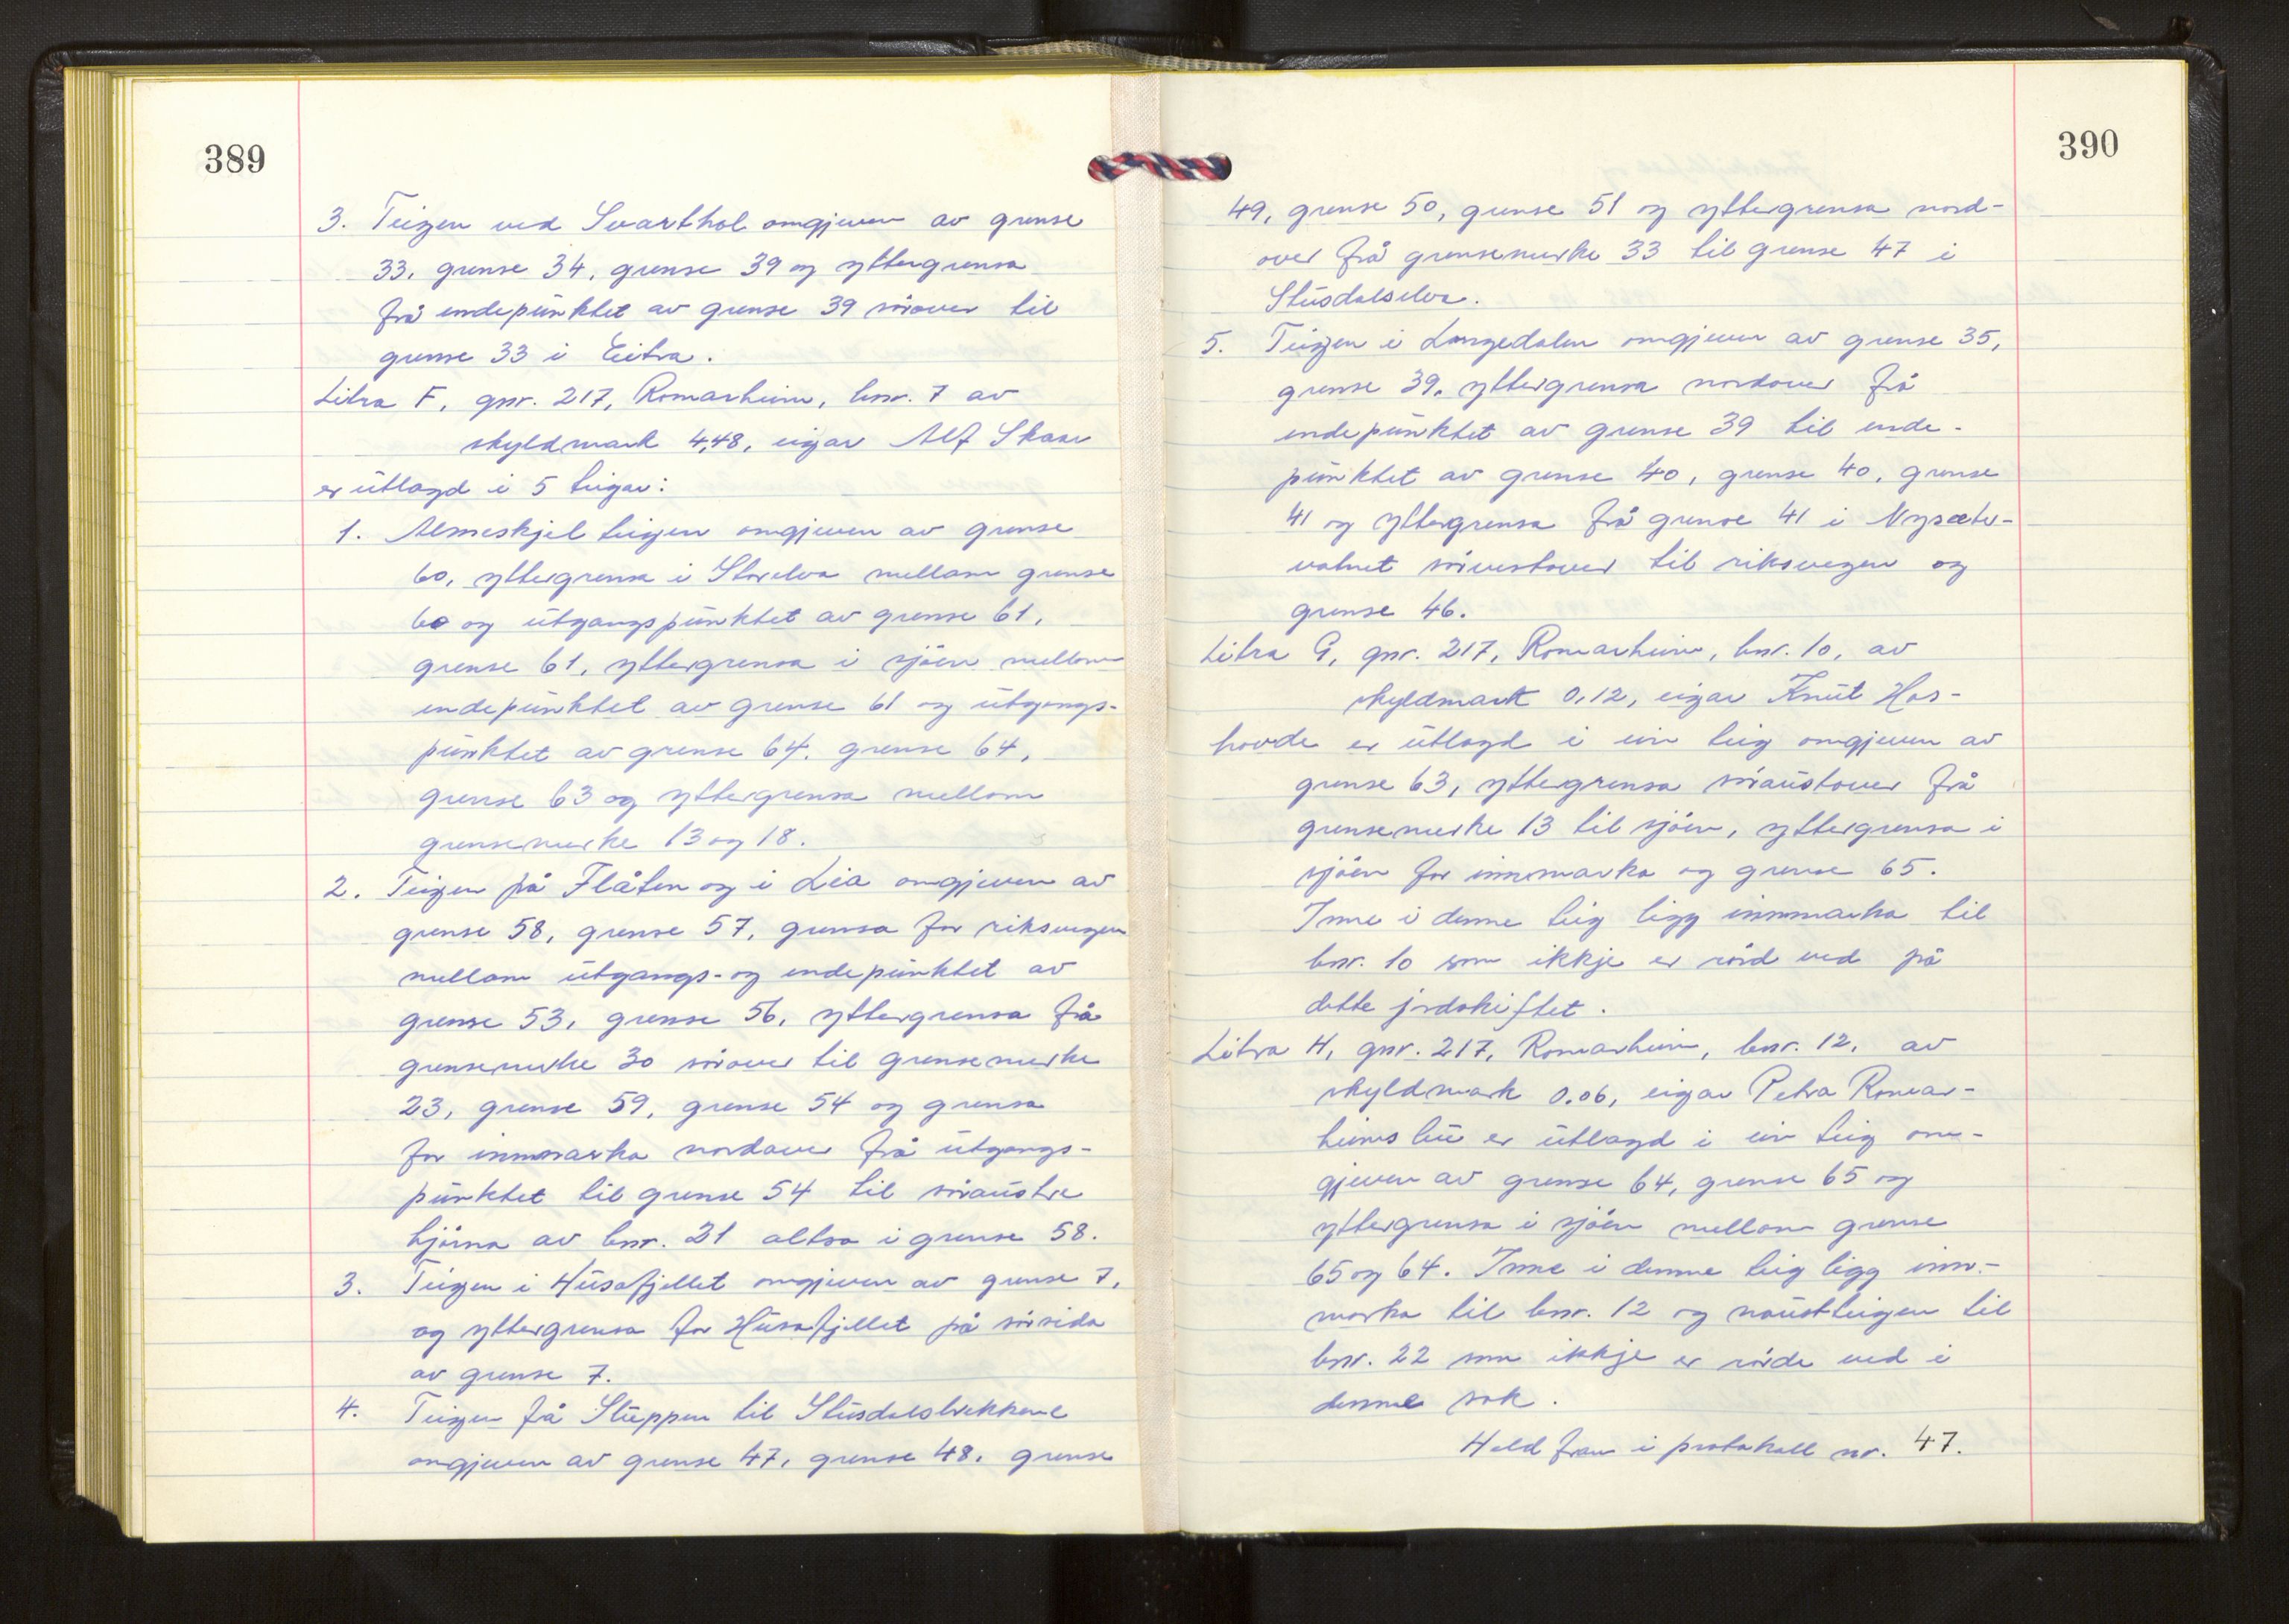 389
3. Teigen ved Svarthol omgjeven av grense
33, grense 34, grense 39 og yttergrensa
frå endepunktet av grense 39 sörover til
grense 33 i Eitra.
Litra F, gnr. 217, Romarheim, bnr. 7 av
skyldmark 4,48, eigar Alf Skaar
er utlagd i 5 teigar:
1. Almeskjelteigen omgjeven av grense
60, yttergrensa i Storelva mellom grense
60 og utgangspunktet av grense 61,
grense 61, yttergrensa i sjöen mellom
endepunktet av grense 61 og utgangs-
punktet av grense 64, grense 64,
grense 63 og yttergrensa mellom
grensemerke 13 og 18.
2. Teigen på Flåten og i Lia omgjeven av
grense 58, grense 57, grensa for riksvegen
mellom utgangs- og endepunktet av
grense 53, grense 56, yttergrensa frå
grensemerke 30 sörover til grensemerke
23, grense 59, grense 54 og grensa
for innmarka nordover frå utgangs-
punktet til grense 54 til söraustre
hjörna av bnr. 21 altso i grense 58.
3. Teigen i Husafjellet omgjeven av grense 7,
og yttergrensa for Husafjellet på sörsida
av grense 7.
4. Teigen frå Stuppen til Stusdalsbrekkene
omgjeven av grense 47, grense 48, grense
390
49, grense 50, grense 51 og yttergrensa nord-
over frå grensemerke 33 til grense 47 i
Stusdalselva.
5. Teigen i Langedalen omgjeven av grense 35,
grense 39, yttergrensa nordover frå
endepunktet av grense 39 til ende-
punktet av grense 40, grense 40, grense
41 og yttergrensa frå grense 41 i Nysæter-
vatnet sörvestover til riksvegen og
grense 46.
Litra G, gnr. 217, Romarheim, bnr. 10, av
skyldmark 0,12, eigar Knut Has-
hovde er utlagd i ein teig omgjeven av
grense 63, yttergrensa söraustover frå
grensemerke 13 til sjöen, yttergrensa i
sjöen for innmarka og grense 65.
Inne i denne teig ligg innmarka til
bnr. 10 som ikkje er rörd ved på
dette jordskiftet.
Litra H, gnr. 217, Romarheim, bnr. 12, av
skyldmark 0.06, eigar Petra Romar-
heimslie er utlagd i ein teig om-
gjeven av grense 64, grense 65 og
yttergrensa i sjöen mellom grense
65 og 64. Inne i denne teig ligg inn-
marka til bnr. 12 og naustteigen til
bnr. 22 som ikkje er rörde ved i
denne sak.
Held fram i protokoll nr. 47.